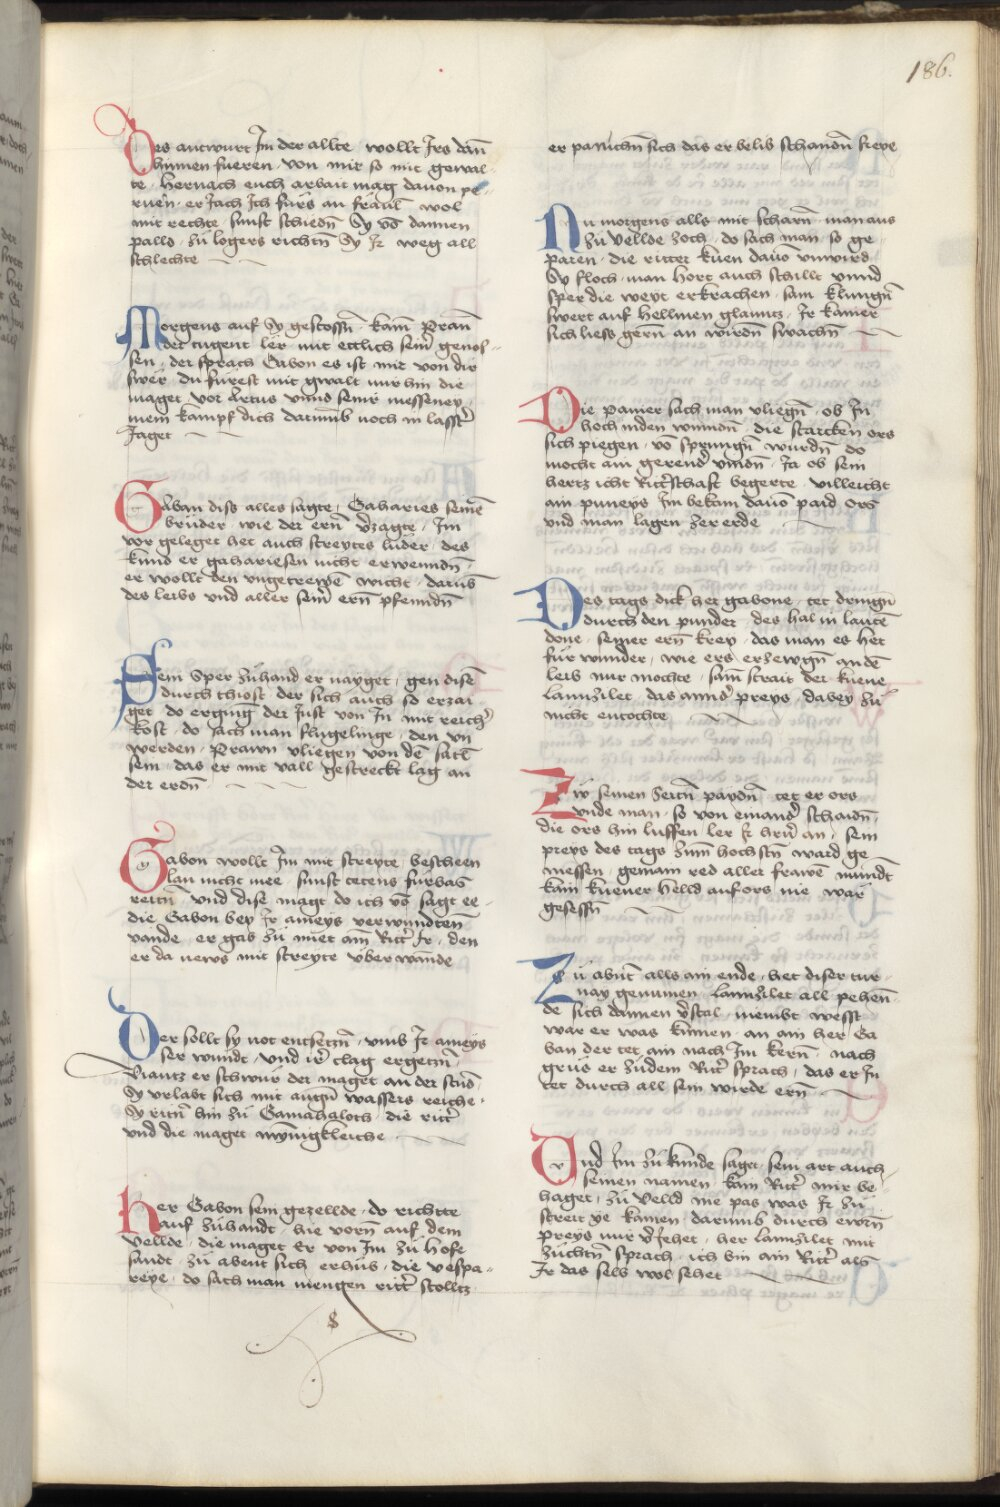 186.
Des antwurt Im der allte wollt Irs dañ
hinnen fueren · von mir so mit gewal-
te · hernach euch arbait mag dauon pe-
ruen · er Jach Ich fürs an fräuℓ wol
mit rechte · sunst schiedñ Sy võ dannen
palld · zu logers richtñ Sy Ir weg all
schlechte
Morgens auf Sy gestossñ · kam Prañ
der tugent ler · mit ettlich seiñ genos-
sen · der sprach Gabon es ist mir von dir
swer · du fürest mit gwalt mir hin die
maget vor Artus vnnd seinr messeney
mein kampf dich darumb noch in lasster
Jaget
Gaban diss alles sagte · Gaharies seinē
brüder · wie der ern̄ vzagte · Im
vor geleget het auch streytes lüder · des
kund er gahariesen nicht erwenndñ
er wollt den vngetrewē wicht · darub
des leibs vnd aller seiñ ern̄ pfenndñ
Sein Sper zuhand er nayget · gen disē
durch thiost · der sich auch so erzai
get · do ergieng der Just von In mit reicher
kost · do sach man flugelinge · den vn
werden · Prawn vliegen von dē satl
sein · das er mit vall gestreckt lag an
der erdñ
Gabon wollt Im mit streyte · bescheen
lan nicht mee · sunst tetens fürbas
reitñ · vnd dise magt do ich võ sagt ee-
die Gabon bey Ir ameys verwundten
vande · er gab zu miet aim Ritter Ir · den
er da news mit streyte vberwande
Der sollt sy not entsetzñ · vmb Ir ameys
ser wundt · vnd ir clag ergetzñ ·
Viantz er schwur der maget an der stūd
Sy vrlabt sich mit augñ wassers reiche ·
Sy ritñ hin zu Gamahaloth · die ritter
vnd die maget mynnigkleiche
Her Gabon sein gezellde · do richtte
auf zuhandt · hie vorn̄ auf dem
vellde · die maget Er von Im zu hofe
sandt · zu abent sich erhub · die vespa-
reye · do sach man mengen ritter stolltz
er parucħn sich das er belib schandñ freye
Nu morgens alls mit scharn̄ · man aus
zu vellde zoch · do sach man so ge-
paren · die ritter küen dauō vnwird
Sy floch · man hort auch schillt vnnd
sper die weyt erkrachen · sam klungñ
swert auf hellmen glanntz · Ir kainer
sich liess gern̄ an wirdñ swachñ
Die panier sach man vliegñ · ob In
hoch inden winndñ · die starcken ors
sich piegen · võ sprungñ wurdñ do
mocht ain gerend vindñ · Ja ob sein
hertz icht Ritterschaft begerte · villeicht
ain puneys Im bekam dauō paid ors
vnd man lagen zer erde
Des tags dick het gabone · tet dringñ
durch den punder · des hal in lautē
done · seiner ern̄ krey · das man es het
für wunder · wie ers erzewgñ an dē
leib nur mochte · sam strait der küene
lannzilet · das annder preys · dabey zu
nicht entochte
Zw seinen seitñ paydñ · tet er ors
vnde man · so von einander schaidñ
die ors hin luffen · ler Ir hrn̄ an · sein
preys des tags zum hochstñ ward ge
messen · gemain red aller frawē mundt
kain küener helld auf ors nie war
gesessñ
Zu abnt alls ain ende · het diser tur-
nay genumen · Lannzilet all pehen-
de sich dannen verstal · niembt wesst
war er was kumen · an ain her Ga
ban der tet ain nach Im kern̄ · nach
grus er zu dem Ritter sprach · das er In
tet durch all sein wirde ern̄
Vnd Im zu kunde saget sein art auch
seinen namen · kain Ritter mir be-
haget · zu velld nie pas was Ir zu
streit ye kamen · darumb durch ewrn̄
preys mir veriehet · her lannzilet mit
züchtñ sprach · ich bin ain Ritter als
Ir das selb wol sehet